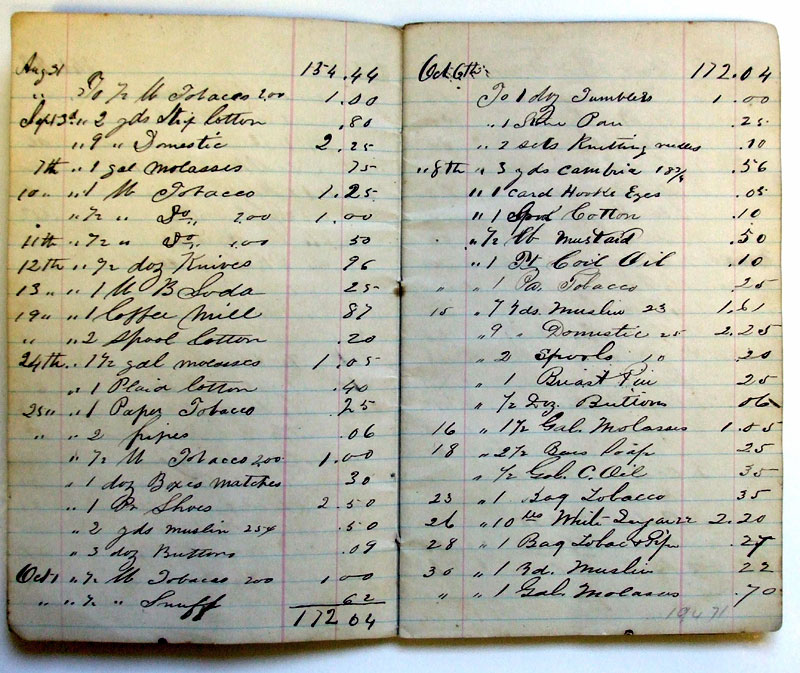 Aug 31 154.44
" To ½ lb Tobacco 200 1.00
Sept 3d " 2 yds Cotton .80
" 9 " Domestic 2.25
7th " 1 gal molasses 75
10 " " 1 lb Tobacco 1.25
" ½ " Do " 200 1.00
11th " ½ " Do " 100 50
12th " ½ doz Knives 96
13 " " 1 lb B Soda 25
19 " " 1 Coffee Mill 87
" " 2 Spool Cotton .20
24th " 1½ gal molasses 1.05
" 1 Plaid Cotton .40
25 " " 1 Paper Tobacco .25
" " 2 pipes .06
" ½ lb Tobacco 200 1.00
" 1 doz Boxes matches 30
" 1 Pr Shoes 2.50
" 2 yds muslin 25¢ .50
" 3 doz Buttons .09
Oct 1 " ½ lb Tobacco 200 1.00
" " ½ " Snuff 62
172 04
Oct. 6th 172.04
To 1 doz Tumblers 1.00
" 1 Pan .25
" 2 sets Knitting needles .10
" 8th " 3 yds cambric 18¾ .56
" 1 card Hook & Eyes .05
" 1 Spool Cotton .10
" ½ lb Mustard .50
" 1 Pt Coil Oil .10
" " 1 Pa. Tobacco 25
15 " 7 Yds. Muslin 23 1.61
" 9 " Domestic 25 2.25
" 2 Spools 10 .20
" 1 Breast Pin 25
" ½ Doz. Buttons 06
16 " 1½ Gal. Molasses 1.05
18 " 2½ Bars Soap 25
" ½ Gal. C. Oil 35
23 " 1 Bag Tobacco 35
26 " 10 lbs White Sugar 22 2.20
28 " 1 Bag Tobac & Pipe .27
30 " 1 Yd. Muslin 22
" " 1 Gal. Molasses .70
194 71